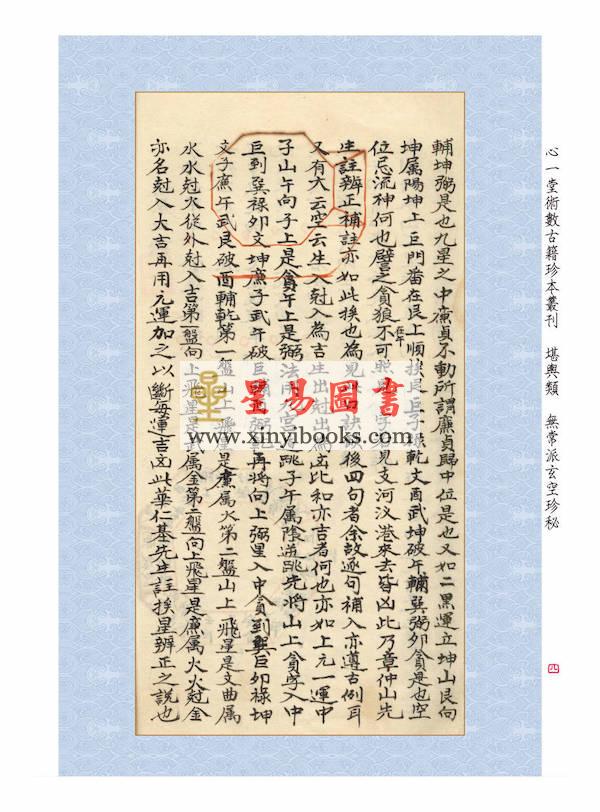 心一堂術數古籍珍本叢刊 堪輿類 無常派玄空珍秘
四
輔坤弼是也九星之中廉貞不動所謂廉貞歸中位是也又如二黑運立坤山艮向
坤屬陽坤上巨門當在艮上順挨艮巨子祿乾文酉武坤破午輔巽弼卯貪是也空
位忌流神何也譬之貪狼不可 見支河汊港來去皆凶此乃章仲山先
在午
生註辨正補註亦如此挨也為見 訣後四句者余故逐句補入亦遵古例耳
又有大云空云生入尅入為吉生出尅出為凶比和亦吉者何也亦如上元一運中
子山午向子上是貪午上是弼法用九宮 跳子午屬陰逆跳先將山上貪字入中
巨到巽祿卯文坤廉子武午破巨輔 弼再將向上弼星入中貪到巽巨卯祿坤
文子廉午武艮破酉輔乾第一盤山上飛星是廉屬火第二盤山上飛星是文曲屬
水水尅火從外尅入吉第一盤向上飛星是武屬金第二盤向上飛星是廉屬火火尅金
亦名尅入大吉再用元運加之以斷每運吉凶此華仁基先生註挨星辨正之說也
星易圖書
www.xinyibooks.com